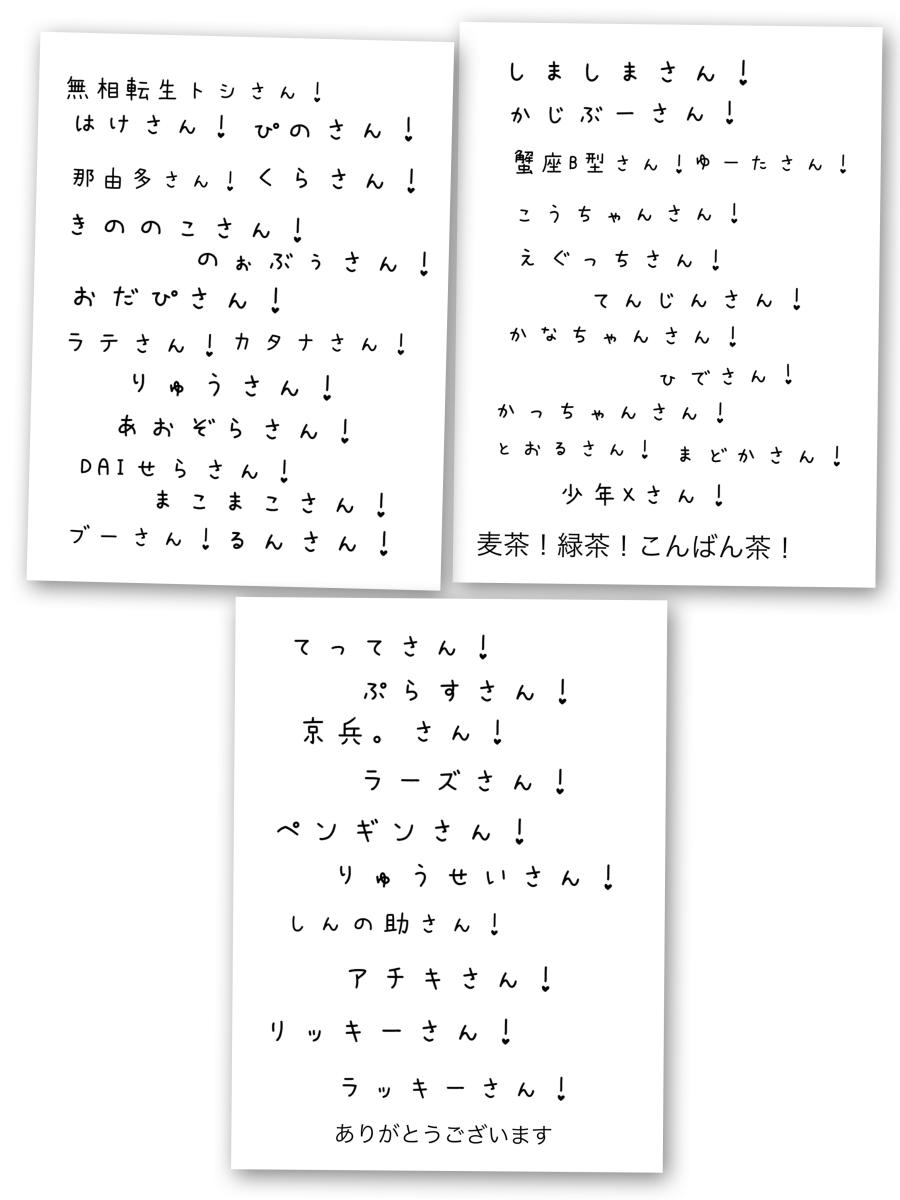 無相転生トシさん!
はけさん! ぴのさん!
那由多さん! くらさん!
きののこさん!
のぉぶぅさん!
おだぴさん!
ラテさん! カタナさん!
りゅうさん!
あおぞらさん!
DAIせらさん!
まこまこさん!
ブーさん! るんさん!
しましまさん!
かじぶーさん!
蟹座B型さん! ゆーたさん!
こうちゃんさん!
えぐっちさん!
てんじんさん!
かなちゃんさん!
ひでさん!
かっちゃんさん!
とおるさん! まどかさん!
少年Xさん!
麦茶!緑茶!こんばん茶!
てってさん!
ぷらすさん!
京兵。さん!
ラーズさん!
ペンギンさん!
りゅうせいさん!
しんの助さん!
アチキさん!
リッキーさん!
ラッキーさん!
ありがとうございます